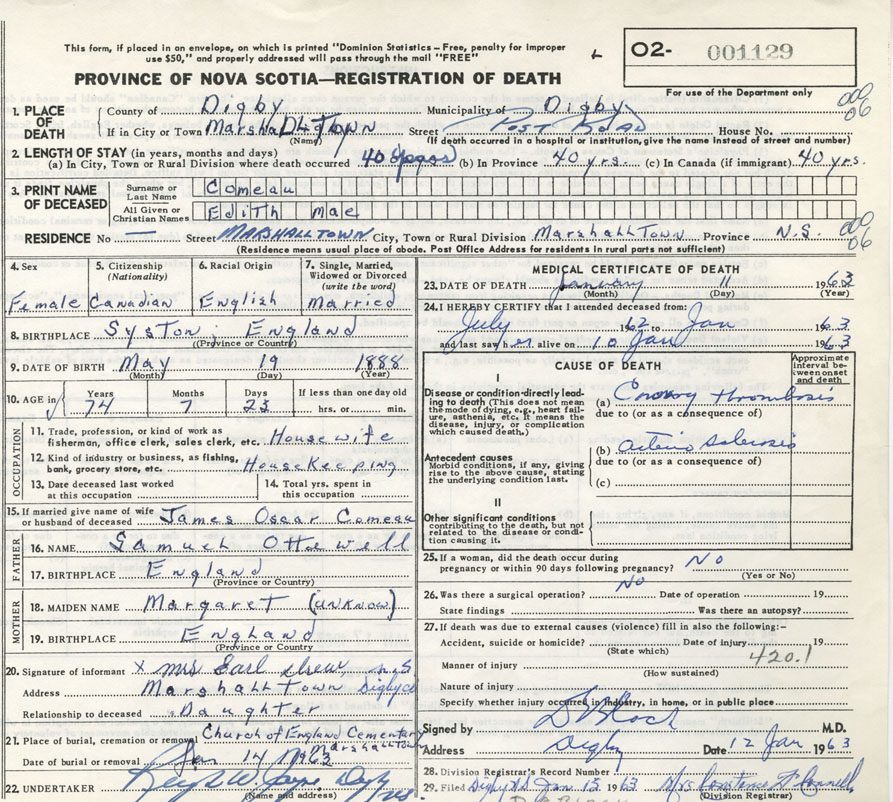 This form, if placed in an envelope, on which is printed "Dominion Statistics – Free, penalty for improper
use $50," and properly addressed will pass through the mail "FREE"
O2- 001129
PROVINCE OF NOVA SCOTIA—REGISTRATION OF DEATH
For use of the Department only
1. PLACE OF DEATH County of Digby Municipality of Digby
If in City or Town Marshalltown Street Post Road House No.
(Name) (If death occurred in a hospital or institution, give the name instead of street and number)
2. LENGTH OF STAY (in years, months and days)
(a) In City, Town or Rural Division where death occurred 40 (b) In Province 40 yrs. (c) In Canada (if immigrant) 40 yrs.
3. PRINT NAME OF DECEASED Surname or Last Name Comeau
All Given or Christian Names Edith mae
RESIDENCE No — Street MARSHALLTOWN City, Town or Rural Division MarshallTown Province N.S.
(Residence means usual place of abode. Post Office Address for residents in rural parts not sufficient)
4. Sex Female
5. Citizenship (Nationality) Canadian
6. Racial Origin English
7. Single, Married, Widowed or Divorced (write the word) Married
8. BIRTHPLACE Syston, England
(Province or Country)
9. DATE OF BIRTH May 19 1888
(Month) (Day) (Year)
10. AGE in Years 74 Months 7 Days 23 If less than one day old hrs. or min.
OCCUPATION
11. Trade, profession, or kind of work as
fisherman, office clerk, sales clerk, etc. Housewife
12. Kind of industry or business, as fishing,
bank, grocery store, etc. HouseKeeping
13. Date deceased last worked at this occupation
14. Total yrs. spent in this occupation
15. If married give name of wife
or husband of deceased James Oscar Comeau
FATHER
16. NAME Samuel Ottewell
17. BIRTHPLACE England
(Province or Country)
MOTHER
18. MAIDEN NAME Margaret (unknow)
19. BIRTHPLACE England
(Province or Country)
20. Signature of informant x Mrs Earl n.S
Address MarshallTown Digby co
Relationship to deceased Daughter
21. Place of burial, cremation or removal Church of England Cementary
Marshalltown
Date of burial or removal Jan 14 1963
22. UNDERTAKER
(Name and address)
MEDICAL CERTIFICATE OF DEATH
23. DATE OF DEATH January 11 1963
(Month) (Day) (Year)
24. I HEREBY CERTIFY that I attended deceased from:
July 1962 to Jan 1963
and last saw her alive on 10 Jan 1963
CAUSE OF DEATH
Approximate interval between onset and death
I
Disease or condition directly leading to death (This does not mean the mode of dying, e.g., heart failure, asthenia, etc. It means the disease, injury, or complication which caused death.)
(a) Coronary thrombosis
due to (or as a consequence of)
Antecedent causes
Morbid conditions, if any, giving rise to the above cause, stating the underlying condition last.
(b) arterio sclerosis
due to (or as a consequence of)
(c)
II
Other significant conditions contributing to the death, but not related to the disease or condition causing it.
25. If a woman, did the death occur during
pregnancy or within 90 days following pregnancy? No
(Yes or No)
26. Was there a surgical operation? No Date of operation 19
State findings Was there an autopsy?
27. If death was due to external causes (violence) fill in also the following:—
Accident, suicide or homicide? Date of injury 19
(State which)
420.1
Manner of injury
(How sustained)
Nature of injury
Specify whether injury occurred in industry, in home, or in public place
Signed by M.D.
Address Digby Date 12 Jan 1963
28. Division Registrar's Record Number
29. Filed Digby N.S. Jan 15 1963
(Division Registrar)